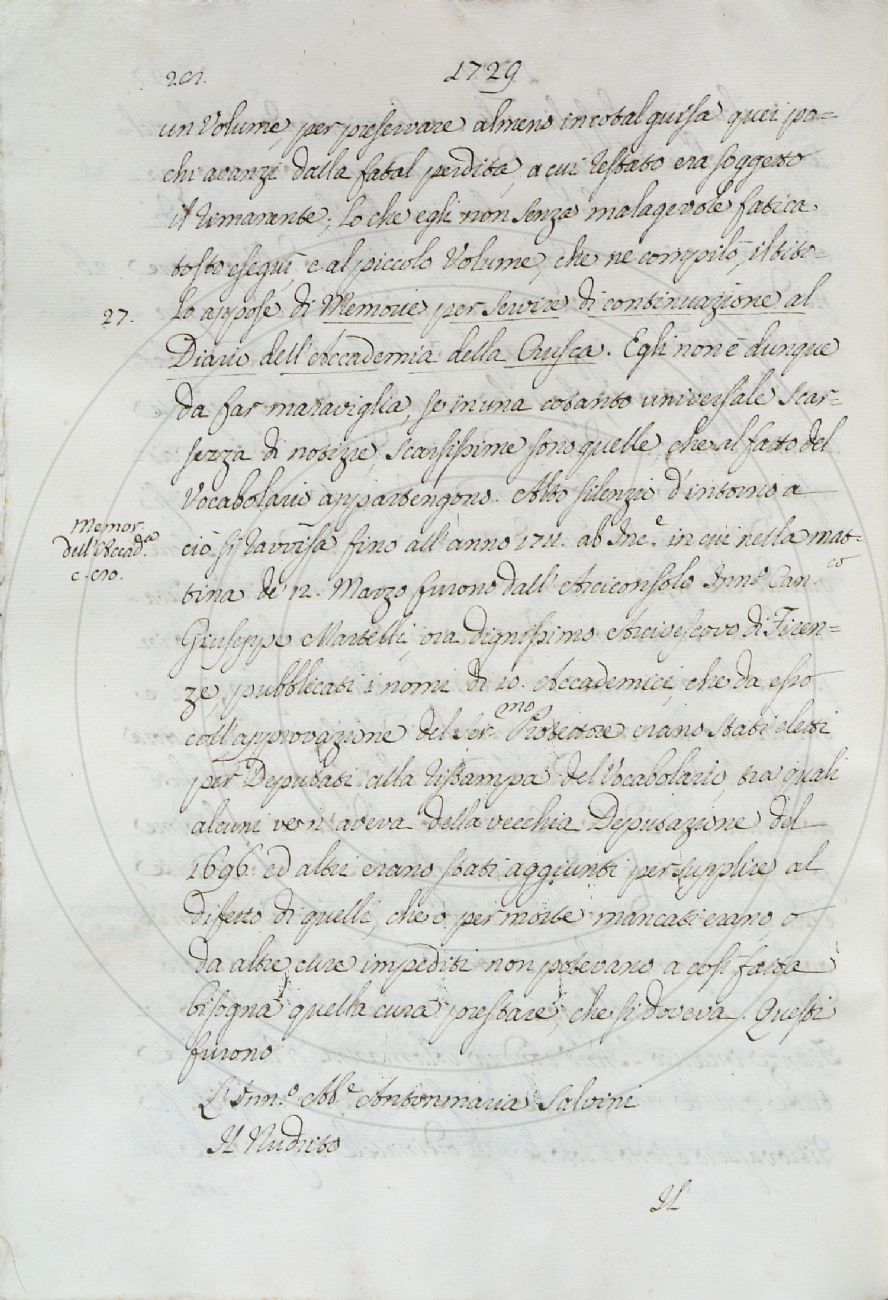 202. 1729
un Volume, per preservare almeno in cotal guisa quei po=
chi avanzi dalla fatal perdita, a cui restato era soggetto
il rimanente; lo che egli non senza malagevole fatica
tosto eseguì, e al piccolo Volume, che ne compilò, il tito=
27. lo appose di Memorie per servire di continuazione al
Diario dell'Accademia della Crusca. Egli non è dunque
da far maraviglia, se in una cotanto universale scar=
sezza di notizie, scarsissime sono quelle, che al fatto del
Vocabolario appartengono. Alto silenzio d'intorno a
Memor.
dell'Accad.a
c. 110.
ciò si ravvisa fino all'anno 1711. ab Inc.e in cui nella mat=
tina de' 12. Marzo furono dall'Arciconsolo Inn.o Can.co
Giuseppe Martelli, ora dignissimo Arcivescovo di Firen=
ze, pubblicati i nomi di 10. Accademici, che da esso
coll'approvazione del Ser.mo Protettore erano stati eletti
per Deputati alla ristampa del Vocabolario, tra quali
alcuni ve n'aveva della vecchia Deputazione del
1696. ed altri erano stati aggiunti per supplire al
difetto di quelli, che o per morte mancati erano o
da altre cure impediti non potevano a così fatta
bisogna quella cura prestare, che si doveva. Questi
furono
L'Inn.o Ab.e Antonmaria Salvini
Il Nudrito
Il